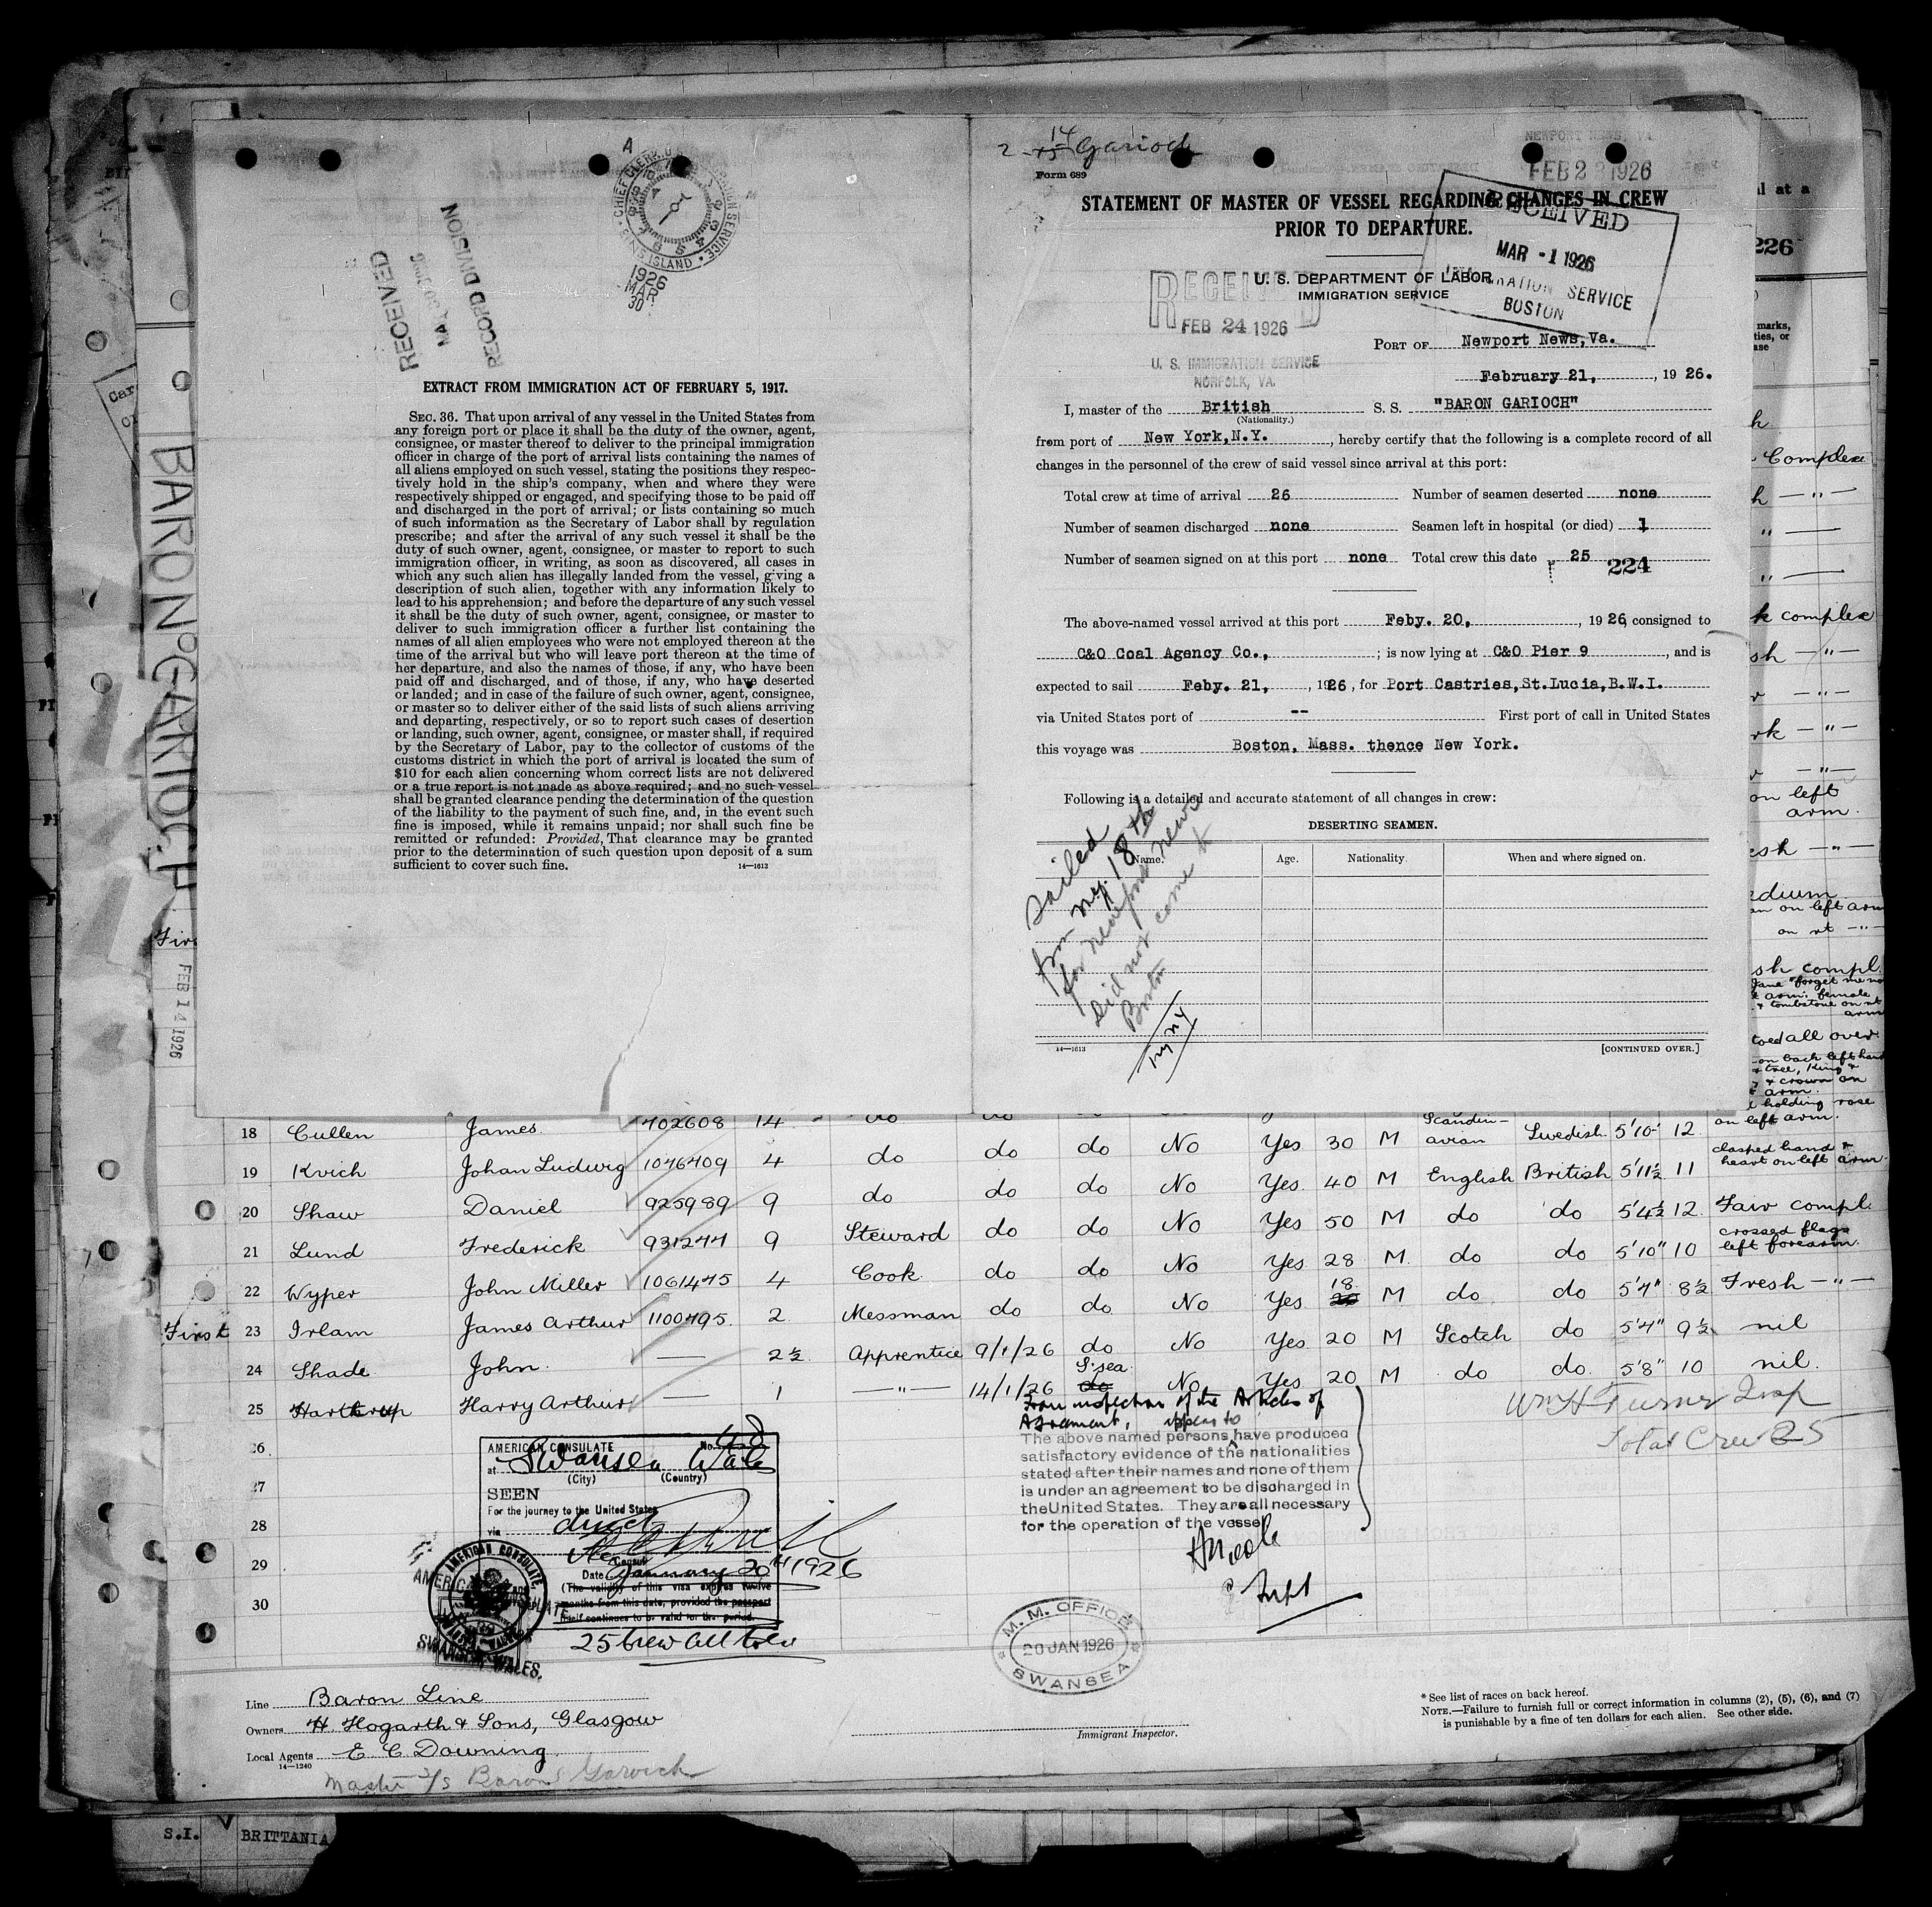 A
CHIEF CLERK, U.S. IMMIGRATION SERVICE • ELLIS ISLAND •
1926
MAR
30
RECEIVED
RECORD DIVISION
EXTRACT FROM IMMIGRATION ACT OF FEBRUARY 5, 1917.
SEC. 36. That upon arrival of any vessel in the United States from
any foreign port or place it shall be the duty of the owner, agent,
consignee, or master thereof to deliver to the principal immigration
officer in charge of the port of arrival lists containing the names of
all aliens employed on such vessel, stating the positions they respec-
tively hold in the ship's company, when and where they were
respectively shipped or engaged, and specifying those to be paid off
and discharged in the port of arrival; or lists containing so much
of such information as the Secretary of Labor shall by regulation
prescribe; and after the arrival of any such vessel it shall be the
duty of such owner, agent, consignee, or master to report to such
immigration officer, in writing, as soon as discovered, all cases in
which any such alien has illegally landed from the vessel, giving a
description of such alien, together with any information likely to
lead to his apprehension; and before the departure of any such vessel
it shall be the duty of such owner, agent, consignee, or master to
deliver to such immigration officer a further list containing the
names of all alien employees who were not employed thereon at the
time of the arrival but who will leave port thereon at the time of
her departure, and also the names of those, if any, who have been
paid off and discharged, and of those, if any, who have deserted
or landed; and in case of the failure of such owner, agent, consignee,
or master so to deliver either of the said lists of such aliens arriving
and departing, respectively, or so to report such cases of desertion
or landing, such owner, agent, consignee, or master shall, if required
by the Secretary of Labor, pay to the collector of customs of the
customs district in which the port of arrival is located the sum of
$10 for each alien concerning whom correct lists are not delivered
or a true report is not made as above required; and no such vessel
shall be granted clearance pending the determination of the question
of the liability to the payment of such fine, and, in the event such
fine is imposed, while it remains unpaid; nor shall such fine be
remitted or refunded: Provided, That clearance may be granted
prior to the determination of such question upon deposit of a sum
sufficient to cover such fine. 14—1613
2 - 14 Garioch
Form 689
NEWPORT NEWS, VA
FEB 23 1926
STATEMENT OF MASTER OF VESSEL REGARDING CHANGES IN CREW
PRIOR TO DEPARTURE.
RECEIVED
MAR -1 1926
IMMIGRATION SERVICE
BOSTON
U. S. DEPARTMENT OF LABOR
IMMIGRATION SERVICE
RECEIVED
FEB 24 1926
U. S. IMMIGRATION SERVICE
NORFOLK, VA.
PORT OF Newport News, Va.
February 21, , 19 26.
I, master of the British S. S. "BARON GARIOCH"
(Nationality.)
from port of New York, N.Y. , hereby certify that the following is a complete record of all
changes in the personnel of the crew of said vessel since arrival at this port:
Total crew at time of arrival 26 Number of seamen deserted none
Number of seamen discharged none Seamen left in hospital (or died) 1
Number of seamen signed on at this port none Total crew this date 25
224
The above-named vessel arrived at this port Feby. 20, , 19 26, consigned to
C&O Coal Agency Co., ; is now lying at C&O Pier 9 , and is
expected to sail Feby. 21, , 1926, for Port Castries, St. Lucia, B.W.I.
via United States port of -- First port of call in United States
this voyage was Boston, Mass. thence New York.
Following is a detailed and accurate statement of all changes in crew:
DESERTING SEAMEN.
Name. Age. Nationality. When and where signed on.
Sailed
from N.Y. 18th
for Newport News
Did not come to
Boston
14—1613 [CONTINUED OVER.]
BARON GARIOCH
FEB 14 1926
226
18 Cullen James 702608 14 do do
19 Krich Johan Ludwig 1046409 4 do do do No Yes 30 M Scandin-avian Swedish 5'10" 12 clasped hand & heart on left arm
20 Shaw Daniel 925989 9 do do do No Yes 40 M English British 5'11½ 11
21 Lund Frederick 931277 9 Steward do do No Yes 50 M do do 5'4½ 12 Fair compl.
22 Wyper John Miller 1061475 4 Cook do do No Yes 28 M do do 5'10" 10 crossed flags left forearm.
First 23 Irlam James Arthur 1100795 2 Messman do do No Yes 18 M do do 5'7" 8½ Fresh — " —
24 Shade John — 2½ Apprentice 9/1/26 do No Yes 20 M Scotch do 5'4" 9½ nil
25 Hartrup Harry Arthur — 1 — " — 14/1/26 S'sea No Yes 20 M do do 5'8" 10 nil.
26
27
28
29
30
Wm H Turner Insp
Total Crew 25
AMERICAN CONSULATE No.
at Swansea Wales
(City) (Country)
SEEN
For the journey to the United States
via direct
Consul
Date January 20th 1926
(The validity of this visa expires twelve
months from this date, provided the passport
itself continues to be valid for the period.
25 Crew all told
AMERICAN CONSULATE,
SWANSEA, WALES.
From inspection of the Articles of
Agreement, appear to
The above named persons have produced
satisfactory evidence of the nationalities
stated after their names and none of them
is under an agreement to be discharged in
the United States. They are all necessary
for the operation of the vessel
Supt
M. M. OFFICE
20 JAN 1926
SWANSEA
Line Baron Line
Owners H. Hogarth & Sons, Glasgow
Local Agents E. C. Downing
14—1240
Master S/S Baron Garioch
Immigrant Inspector.
* See list of races on back hereof.
NOTE.—Failure to furnish full or correct information in columns (2), (5), (6), and (7)
is punishable by a fine of ten dollars for each alien. See other side.
S.I. BRITTANIA